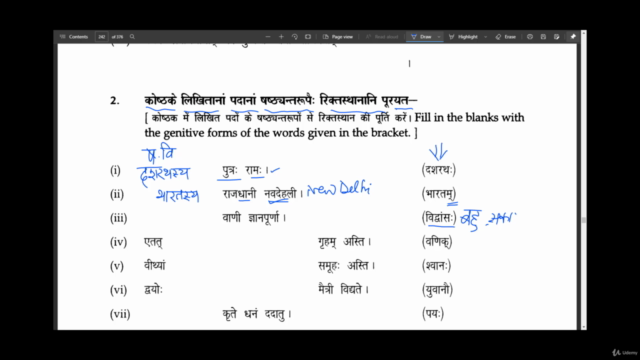 242 of 578
Page view
Draw
Highlight
Erase
2. कोष्ठके लिखितानां पदानां षष्ठ्यन्तरूपैः रिक्तस्थानानि पूरयत–
[ कोष्ठक में लिखित पदों के षष्ठ्यन्तरूपों से रिक्तस्थान की पूर्ति करें। Fill in the blanks with
the genitive forms of the words given in the bracket. ]
ष. वि
(i) दशरथस्य पुत्रः रामः । (दशरथः)
(ii) भारतस्य राजधानी नवदेहली । New Delhi (भारतम्)
(iii) वाणी ज्ञानपूर्णा । (विद्वांसः) बहु
(iv) एतत् गृहम् अस्ति । (वणिक्)
(v) वीथ्यां समूहः अस्ति । (श्वानः)
(vi) द्वयोः मैत्री विद्यते । (युवानौ)
(vii) कृते धनं ददातु । (पयः)
Udemy